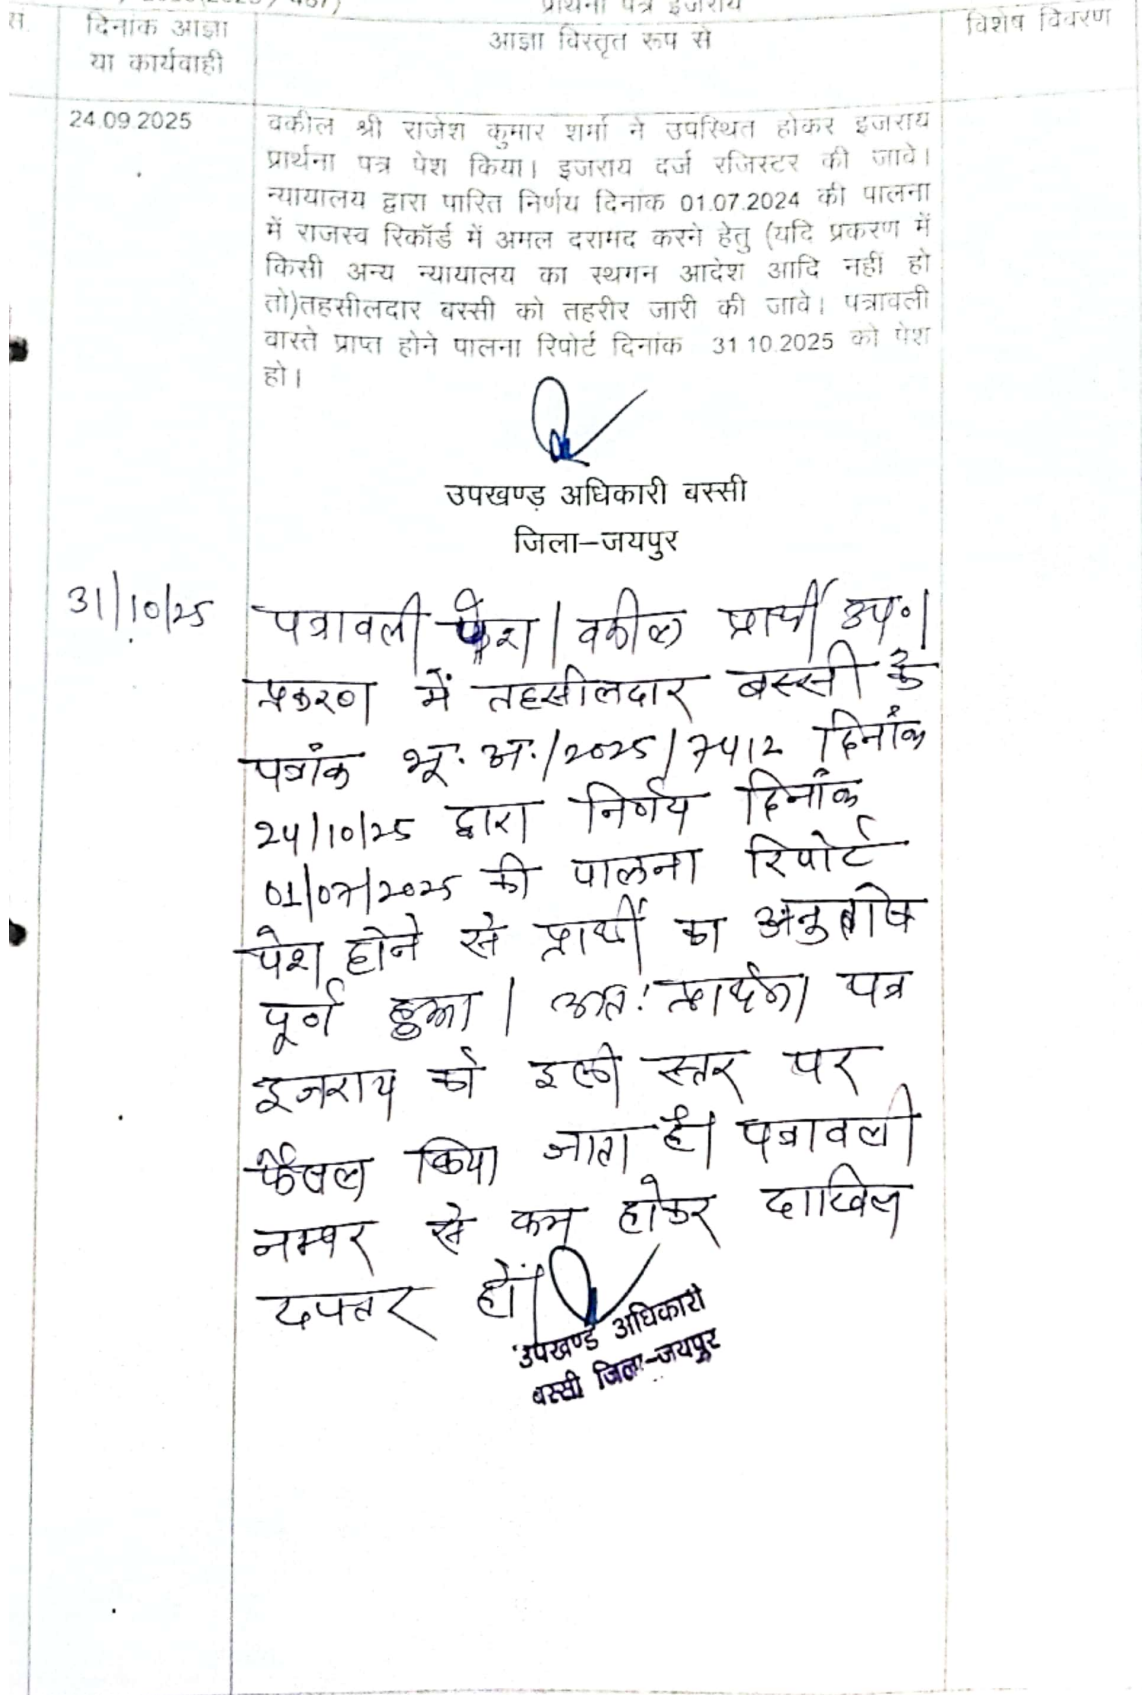 प्रार्थना पत्र इजराय
दिनांक आज्ञा
या कार्यवाही
आज्ञा विस्तृत रूप से
विशेष विवरण
24.09.2025
वकील श्री राजेश कुमार शर्मा ने उपस्थित होकर इजराय
प्रार्थना पत्र पेश किया। इजराय दर्ज रजिस्टर की जावे।
न्यायालय द्वारा पारित निर्णय दिनांक 01.07.2024 की पालना
में राजस्व रिकॉर्ड में अमल दरामद करने हेतु (यदि प्रकरण में
किसी अन्य न्यायालय का स्थगन आदेश आदि नहीं हो
तो)तहसीलदार बस्सी को तहरीर जारी की जावे। पत्रावली
वास्ते प्राप्त होने पालना रिपोर्ट दिनांक 31 10.2025 को पेश
हो।
उपखण्ड अधिकारी बस्सी
जिला–जयपुर
31/10/25
पत्रावली पेश। वकील प्रार्थी उप०।
प्रकरण में तहसीलदार बस्सी के
पत्रांक भू. अ./2025/7412 दिनांक
24/10/25 द्वारा निर्णय दिनांक
01/07/2025 की पालना रिपोर्ट
पेश होने से प्रार्थी का अनुतोष
पूर्ण हुआ। अतः प्रार्थना पत्र
इजराय को इसी स्तर पर
फैसल किया जाता है। पत्रावली
नम्बर से कम होकर दाखिल
दफ्तर हों।
उपखण्ड अधिकारी
बस्सी जिला-जयपुर